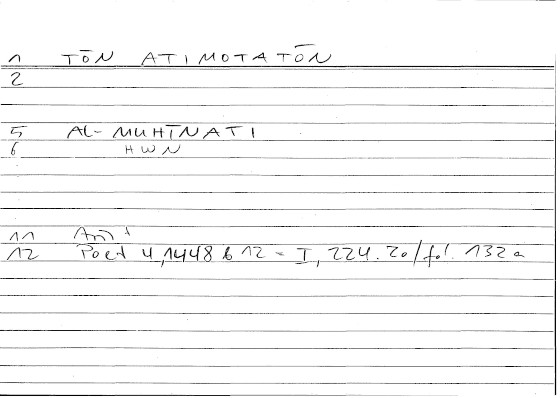 1 TŌN ATIMOTATŌN
2
5 AL-MUHĪNATI
6 HWN
11 Arist
12 Poet 4,1448 b 12 = I, 224.20/fol. 132a